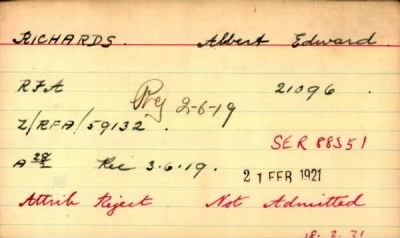 RICHARDS. Albert Edward.
RFA 21096.
2-6-19
Z/RFA/59132.
SER 88351
Rec 3.6.19. 21 FEB 1921
Attrib Reject Not Admitted
18.2.21